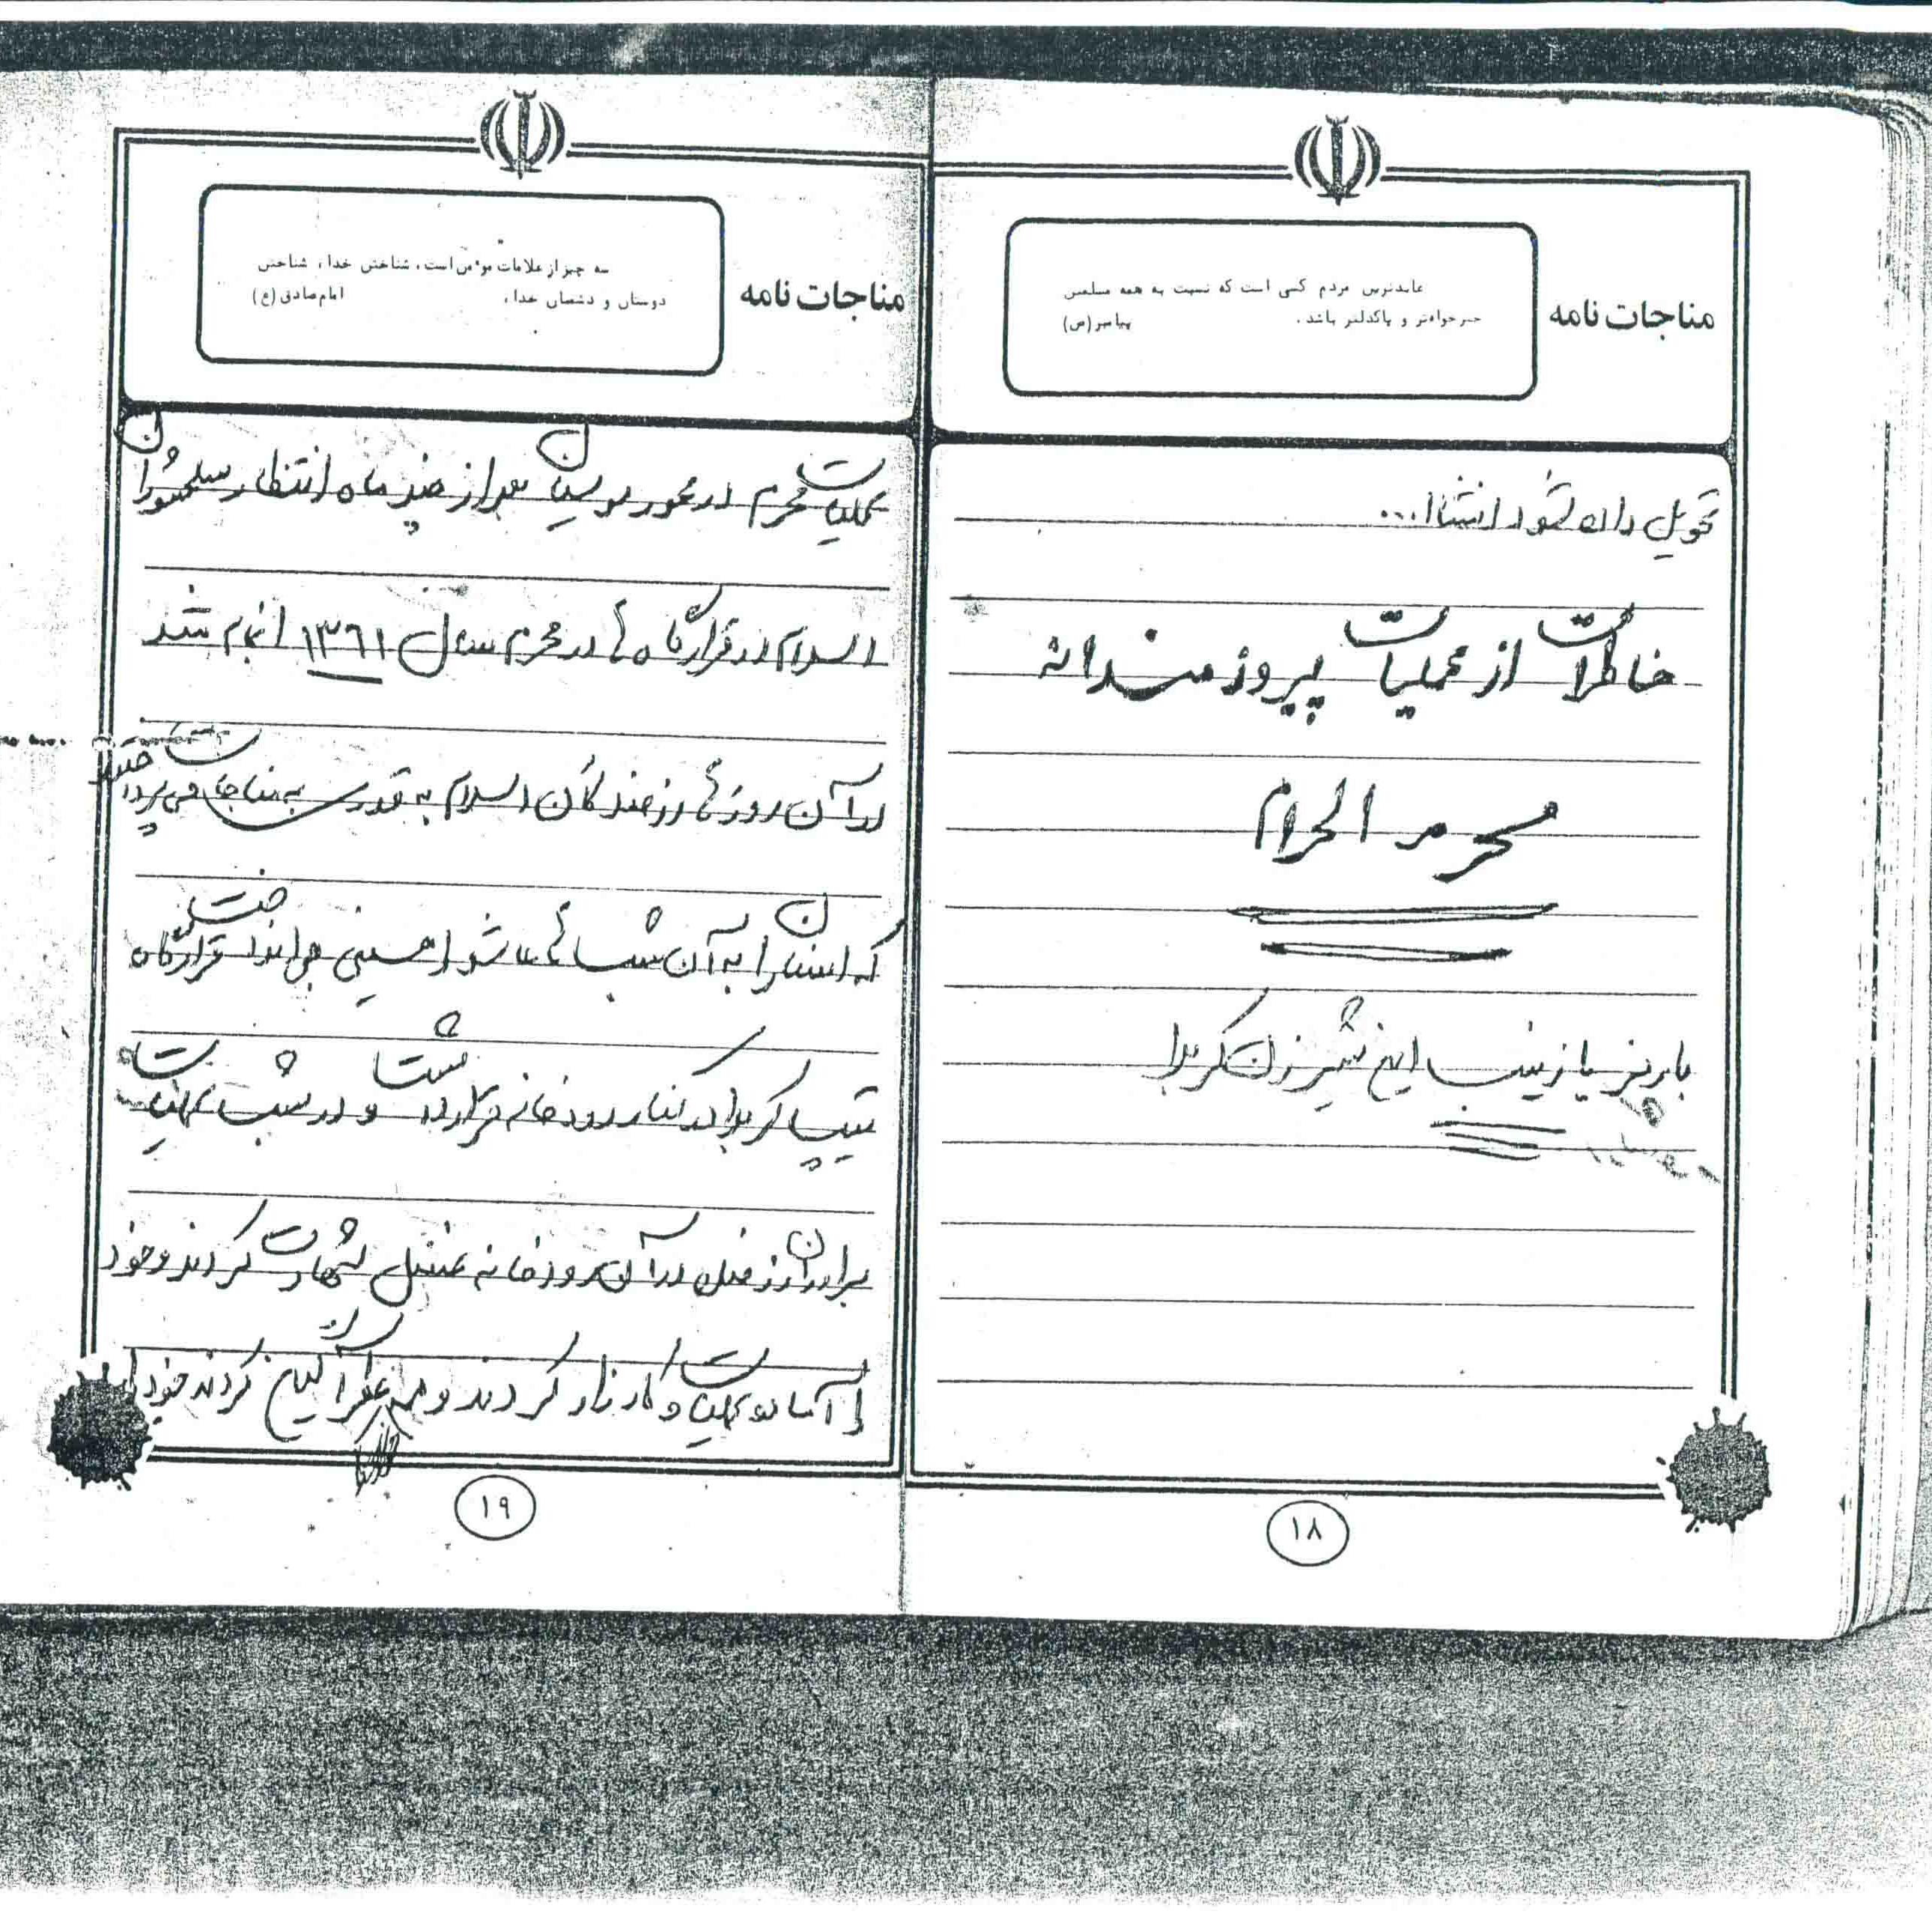 مناجات نامه
عابدترین مردم کسی است که نسبت به همه مسلمین
خیرخواه‌تر و پاکدلتر باشد. پیامبر (ص)
تحویل داده شود انشاا...
خاطرات از عملیات پیروزمندانه
محرم الحرام
با رمز یا زینب این شیر زن کربلا
۱۸
مناجات نامه
سه چیز از علامات موءمن است، شناختن خدا، شناختن
دوستان و دشمنان خدا، امام صادق (ع)
عملیات محرم در محور موسیان بعد از چند ماه انتظار سلحشوران
اسلام در قرارگاه ها در محرم سال ۱۳۶۱ انجام شد
در آن روزها رزمندگان اسلام به قدری به مناجات می پرداختند
که انسان را به آن شبهای عاشورا حسینی می انداخت قرارگاه
تیپ کربلا در کنار رودخانه قرار داشت و در شب عملیات
برادران رزمنده در آن رودخانه غسل شهادت کردند و خود
را آماده عملیات و کارزار کردند و همه عطر آگین کردند خود را
۱۹